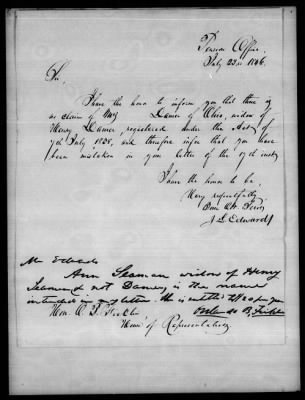 Pension Office
July 22d 1846.
Sir,
I have the honor to inform you that there is
no claim of Mrs Damer of Ohio, widow of
Henry Damer, registered under the Act of
7th July 1838, and therefore infer that you have
been mistaken in your letter of the 17th inst.
I have the honor to be,
Very respectfully
J. L. Edwards
Mr Edwards
Ann Seaman widow of Henry
Seaman & not Damer, is the name
intended in my letter. She is entitled to
Hon. O. B. Ficklin
House of Representatives
Orlando B. Ficklin